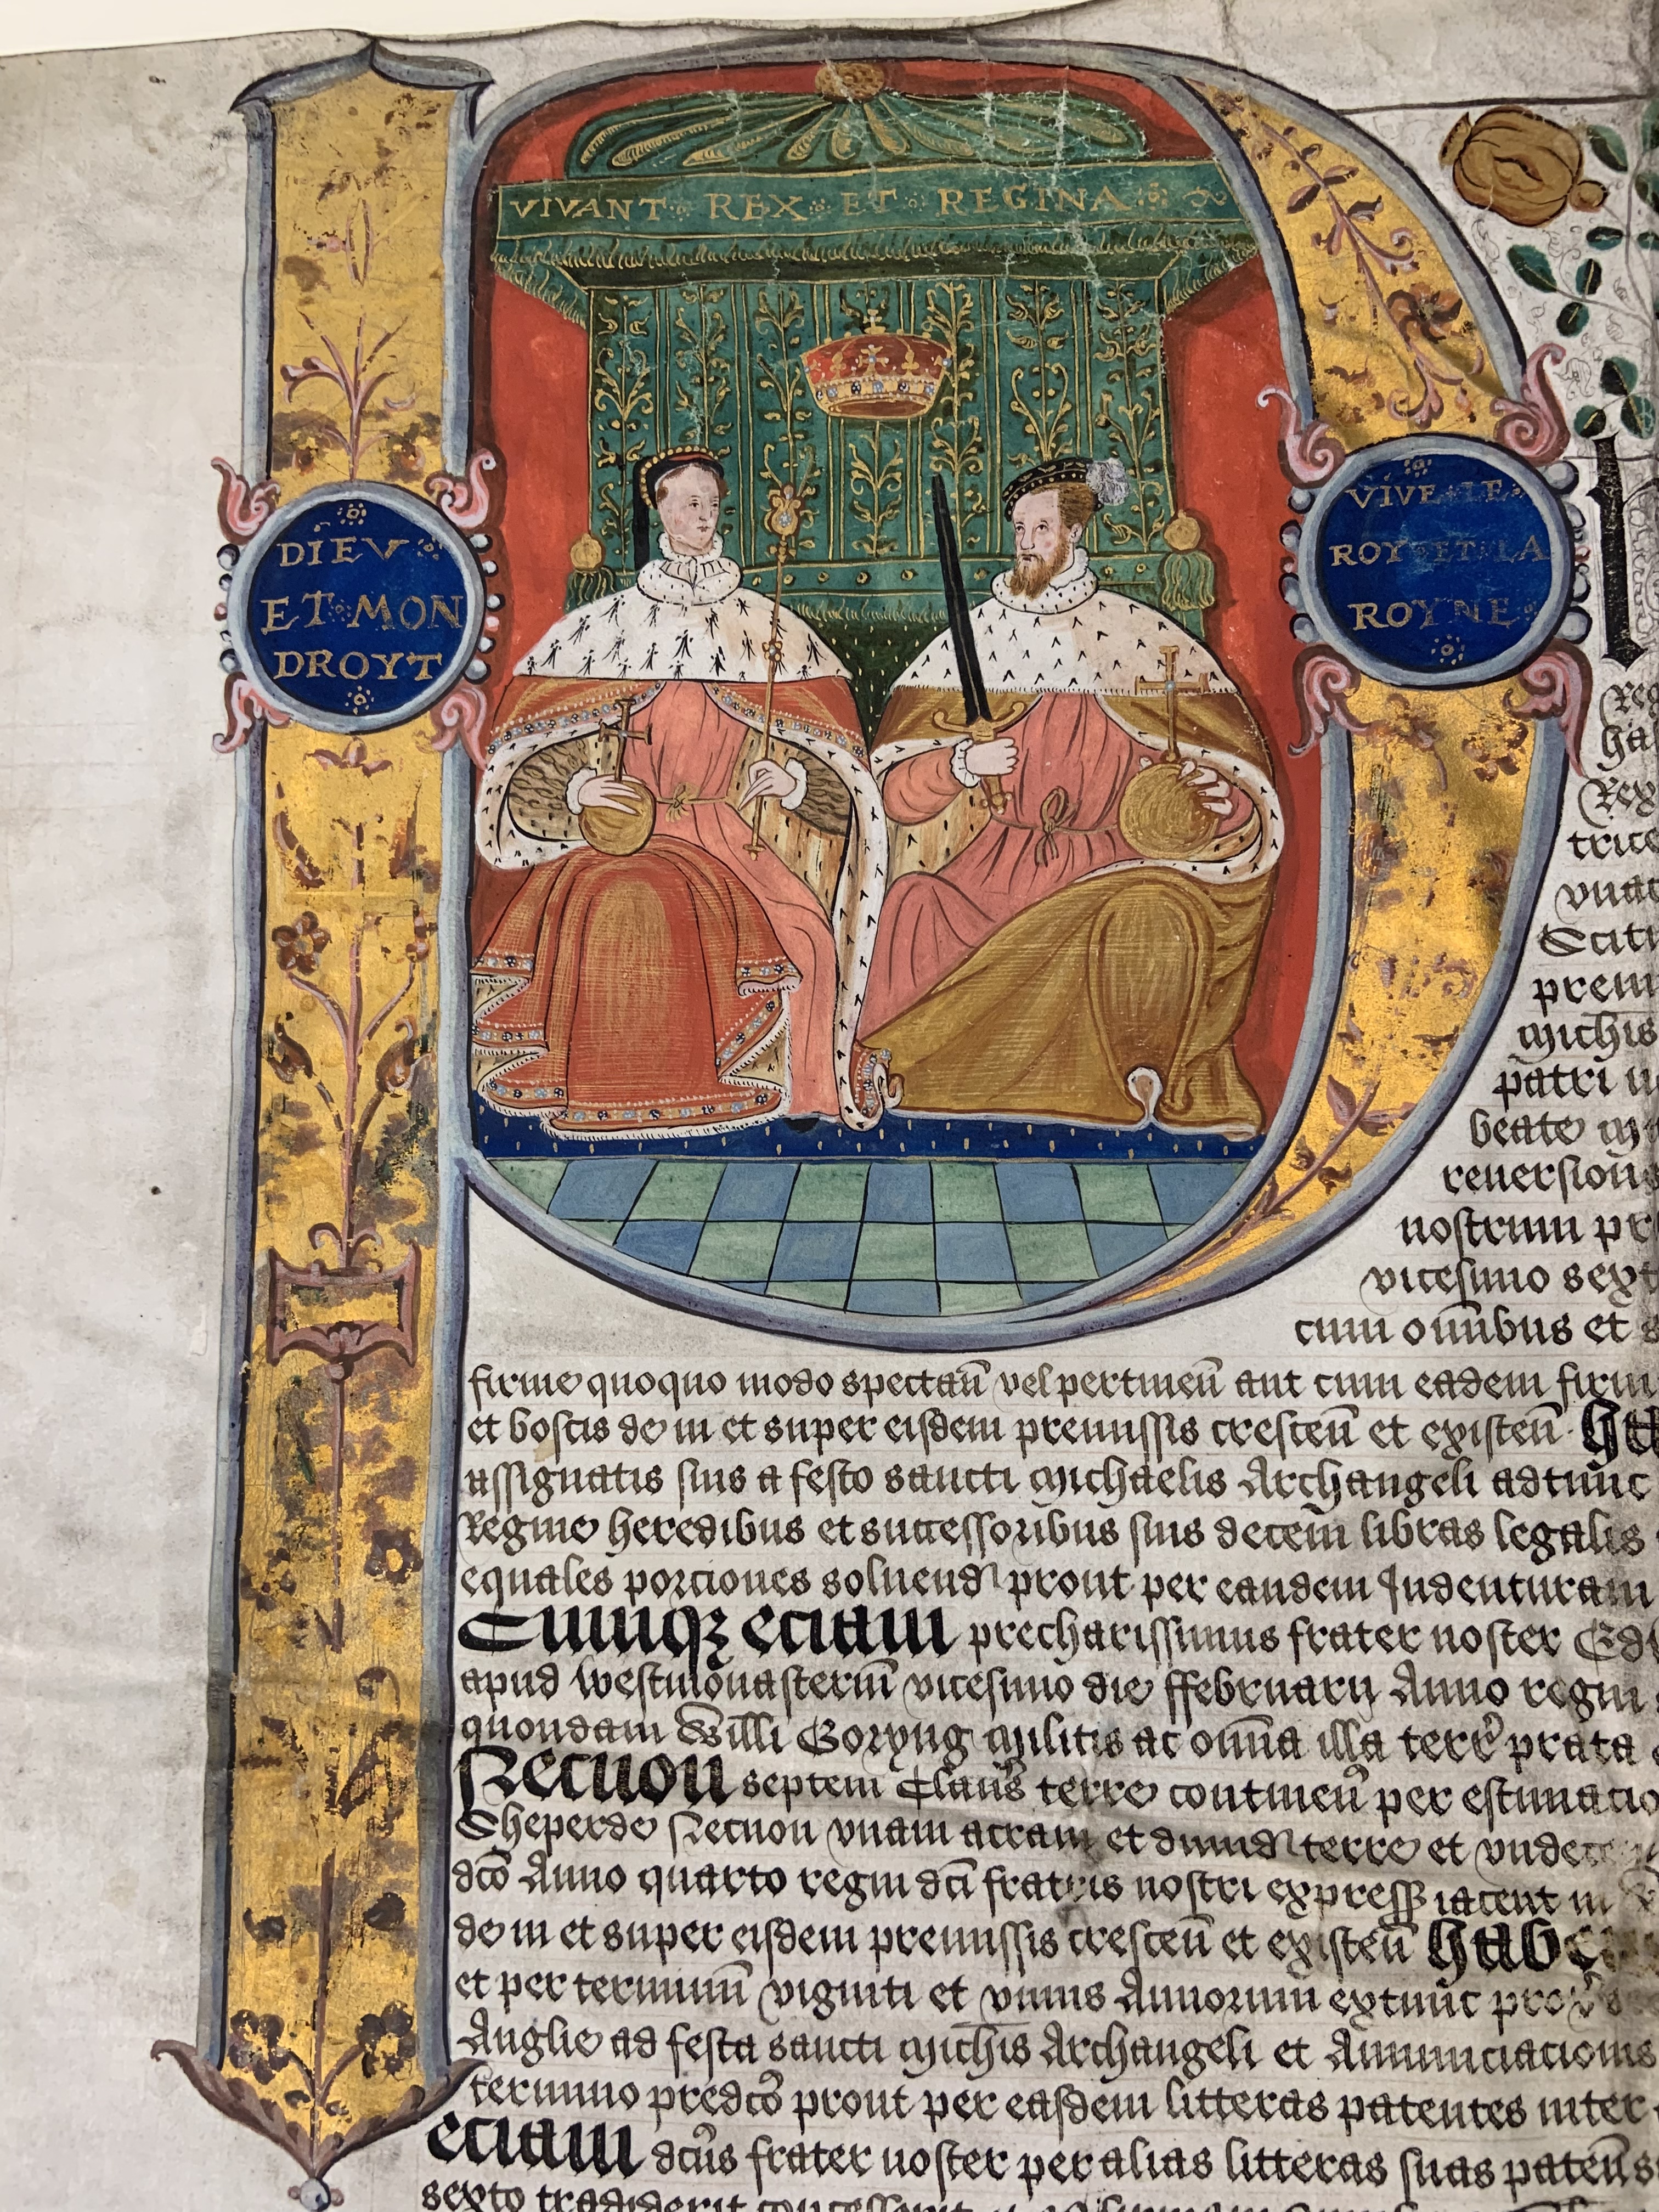 VIVANT REX ET REGINA
DIEV
ET MON
DROYT
VIVE LE
ROY ET LA
ROYNE
Reg
ha
Rex
trice
vnac
Sciti
prem
Michis
patri n
beate m
reuersion
nostrum pr
vicesimo sext
cum om̄ibus et s
firme quoquo modo spectan̄ vel pertinen̄ aut cum eadem firm
et boscis de in et super eisdem premissis crescen̄ et existen̄ Ha
assignatis suis a festo sancti Michaelis Archangeli adtunc
Regine heredibus et successoribus suis decem libras legalis
equales porciones soluend prout per eandem Indenturam
Cumq; eciam precharissimus frater noster Edw
apud Westmonasterium vicesimo die ffebruarij Anno regni
quondam Willi Goryng Militis ac om̄ia illa terr prata
Necnon septem Claus terre continen̄ per estimacio
Sheperde Necnon vnam acram et dimid terre et vndece
dc̄o Anno quarto regni dc̄i fratris nostri express iacent in
de in et super eisdem premissis crescen̄ et existen̄ Habe
et per terminum viginti et vnius Annorum extunc prox
Anglie ad festa sancti Michis Archangeli et Annunciacionis
termino predc̄o prout per easdem litteras patentes inter
eciam dc̄us frater noster per alias litteras suas paten̄
sexto tradiderit concesserit